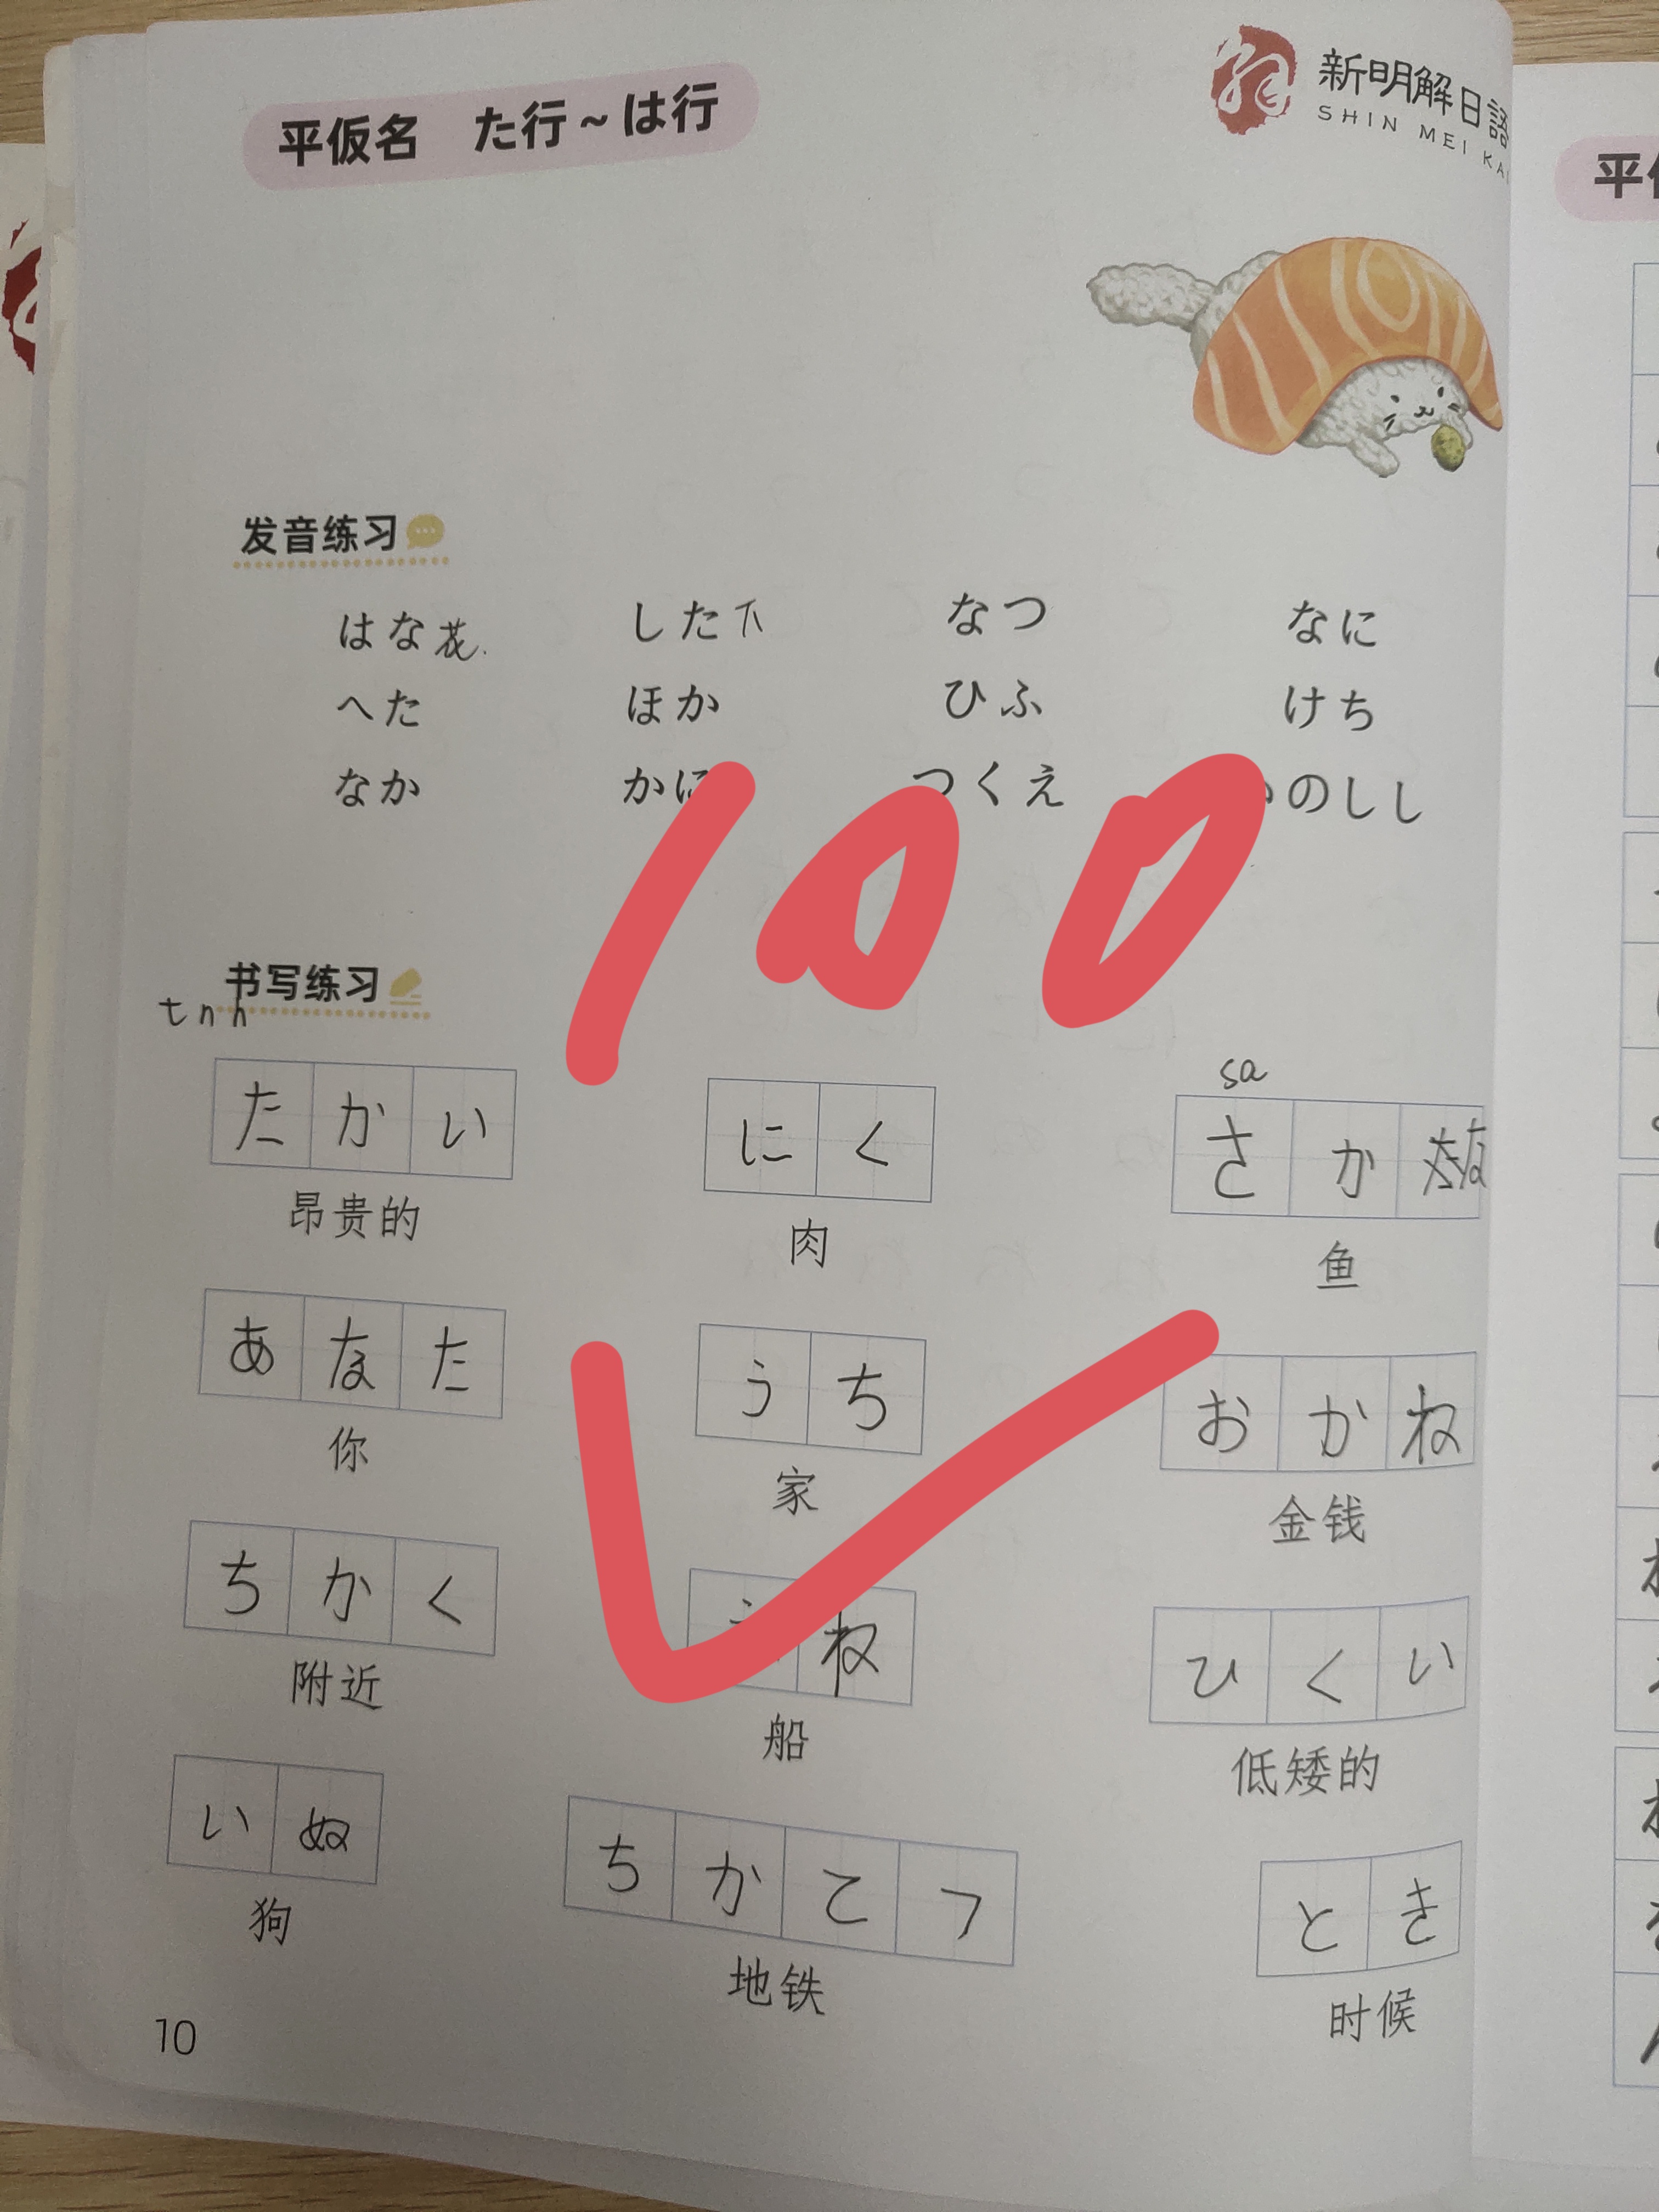 平仮名 た行~は行
新明解日語
SHIN MEI KAI
发音练习
はな 花. した 下 なつ なに
へた ほか ひふ けち
なか かに つくえ のしし
100
书写练习
t n h
sa
たかい にく さか な
昂贵的 肉 鱼
あなた うち おかね
你 家 金钱
ちかく ね ひくい
附近 船 低矮的
いぬ ちかてつ とき
狗 地铁 时候
10